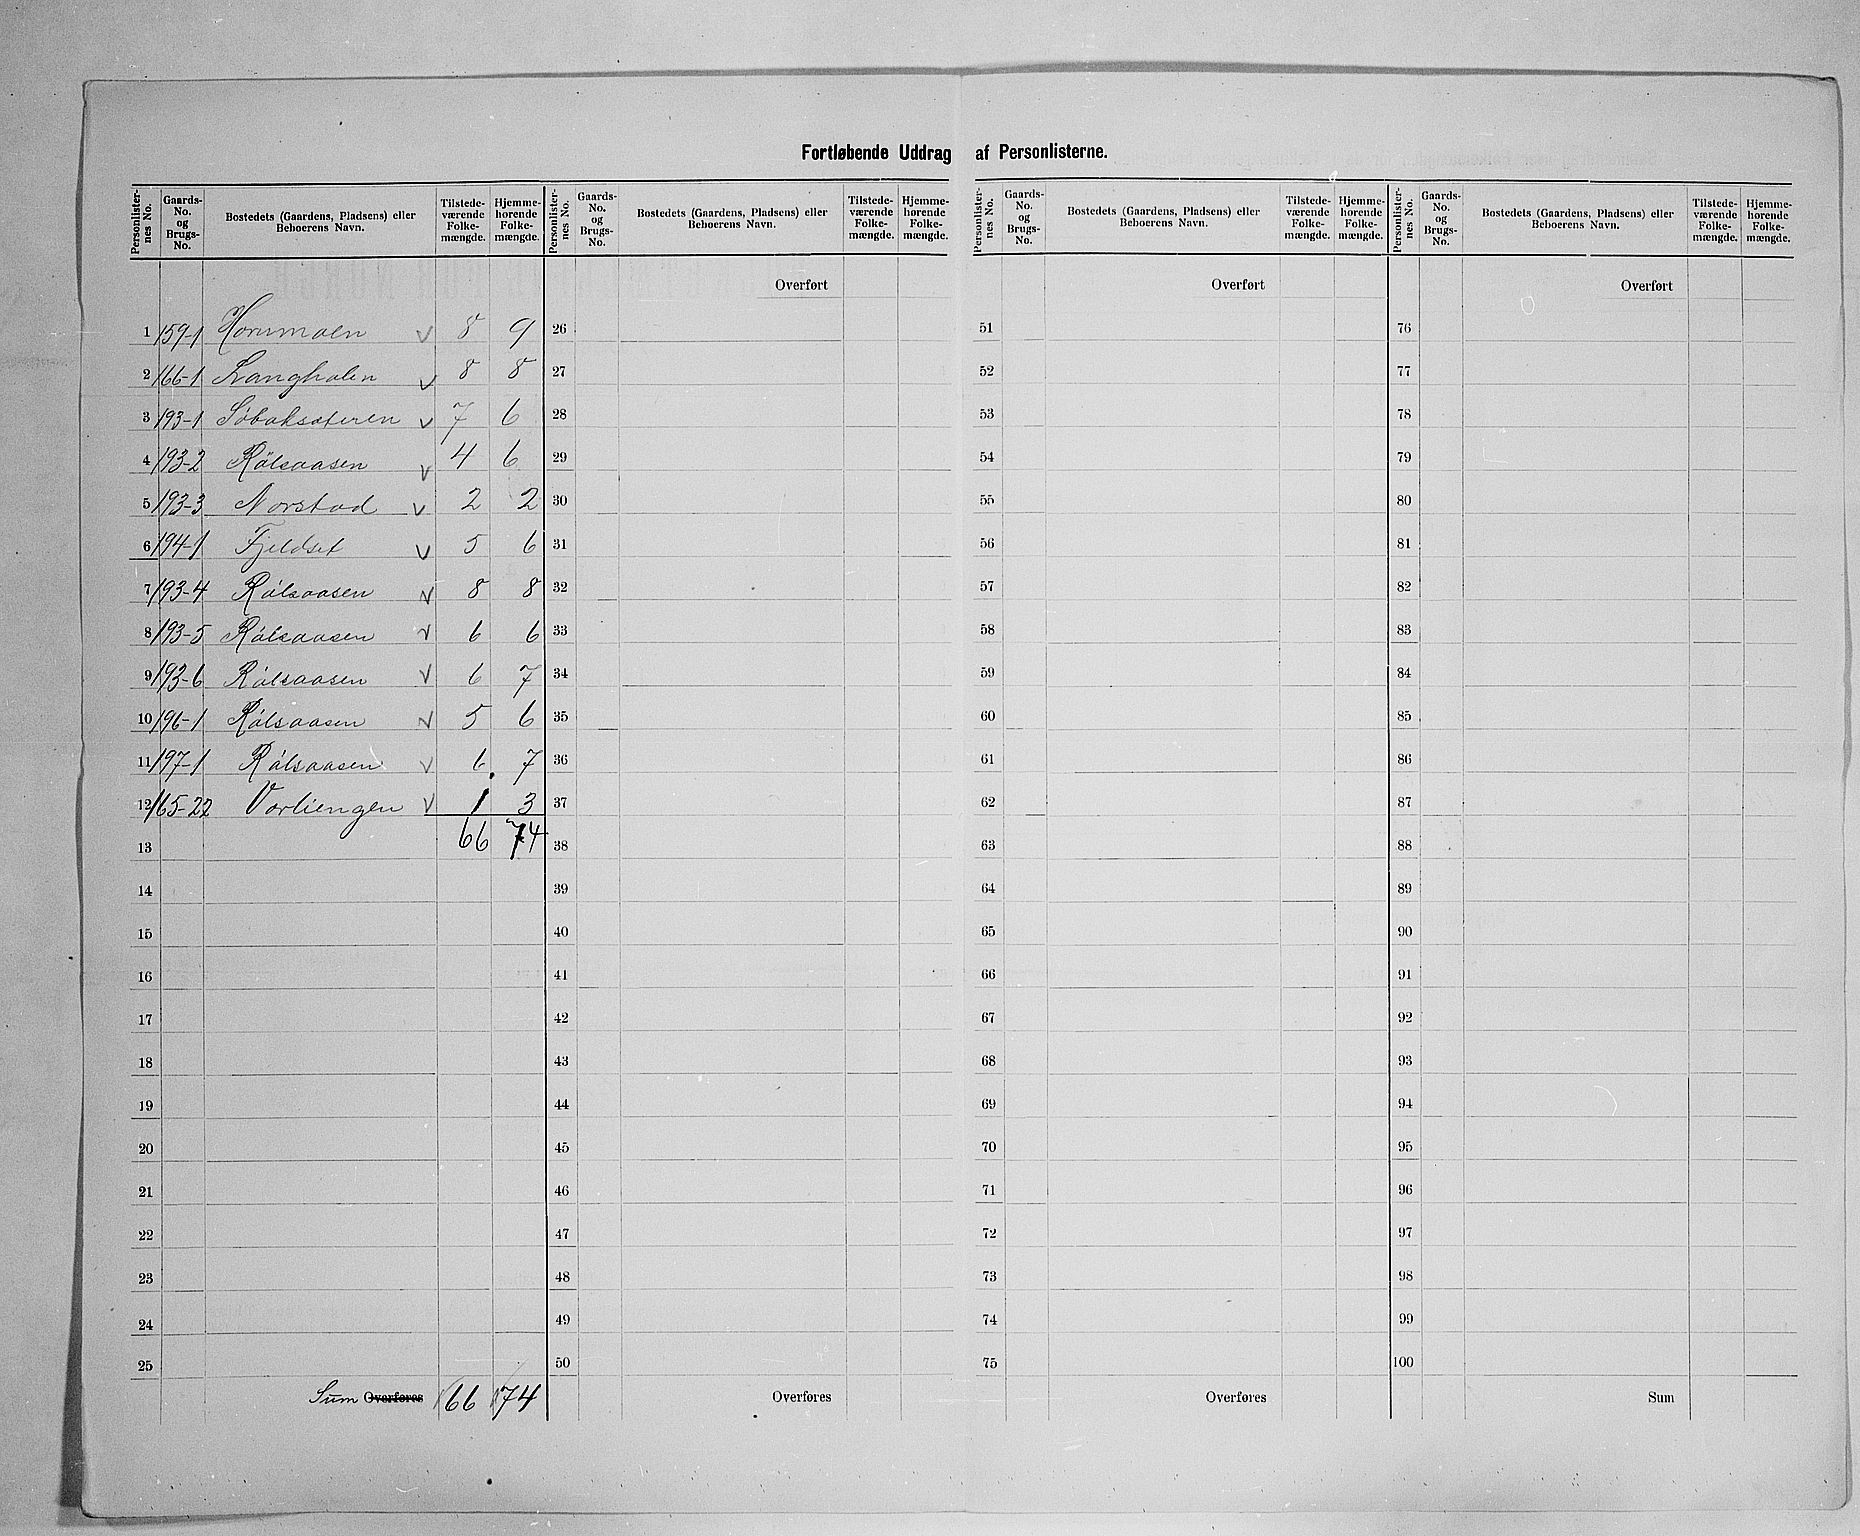 Fortløbende Uddrag af Personlisterne.
Personlister-nes No. | Gaards-No. og Brugs-No. | Bostedets (Gaardens, Pladsens) eller Beboerens Navn. | Tilstede-værende Folke-mængde. | Hjemme-hørende Folke-mængde.
1 159-1 Hornmoen v 8 9
2 166-1 Svangholen v 8 8
3 193-1 Söbaksæteren v 7 6
4 193-2 Rölsaasen v 4 6
5 193-3 Norstad v 2 2
6 194-1 Fjeldset v 5 6
7 193-4 Rölsaasen v 8 8
8 193-5 Rölsaasen v 6 6
9 193-6 Rölsaasen v 6 7
10 196-1 Rölsaasen v 5 6
11 197-1 Rölsaasen v 6 7
12 165-22 Vorliengen v 1 3
13 66 74
14
15
16
17
18
19
20
21
22
23
24
25
Sum Overføres 66 74
Personlister-nes No. | Gaards-No. og Brugs-No. | Bostedets (Gaardens, Pladsens) eller Beboerens Navn. | Tilstede-værende Folke-mængde. | Hjemme-hørende Folke-mængde.
Overført
26
27
28
29
30
31
32
33
34
35
36
37
38
39
40
41
42
43
44
45
46
47
48
49
50
Overføres
Personlister-nes No. | Gaards-No. og Brugs-No. | Bostedets (Gaardens, Pladsens) eller Beboerens Navn. | Tilstede-værende Folke-mængde. | Hjemme-hørende Folke-mængde.
Overført
51
52
53
54
55
56
57
58
59
60
61
62
63
64
65
66
67
68
69
70
71
72
73
74
75
Overføres
Personlister-nes No. | Gaards-No. og Brugs-No. | Bostedets (Gaardens, Pladsens) eller Beboerens Navn. | Tilstede-værende Folke-mængde. | Hjemme-hørende Folke-mængde.
Overført
76
77
78
79
80
81
82
83
84
85
86
87
88
89
90
91
92
93
94
95
96
97
98
99
100
Sum